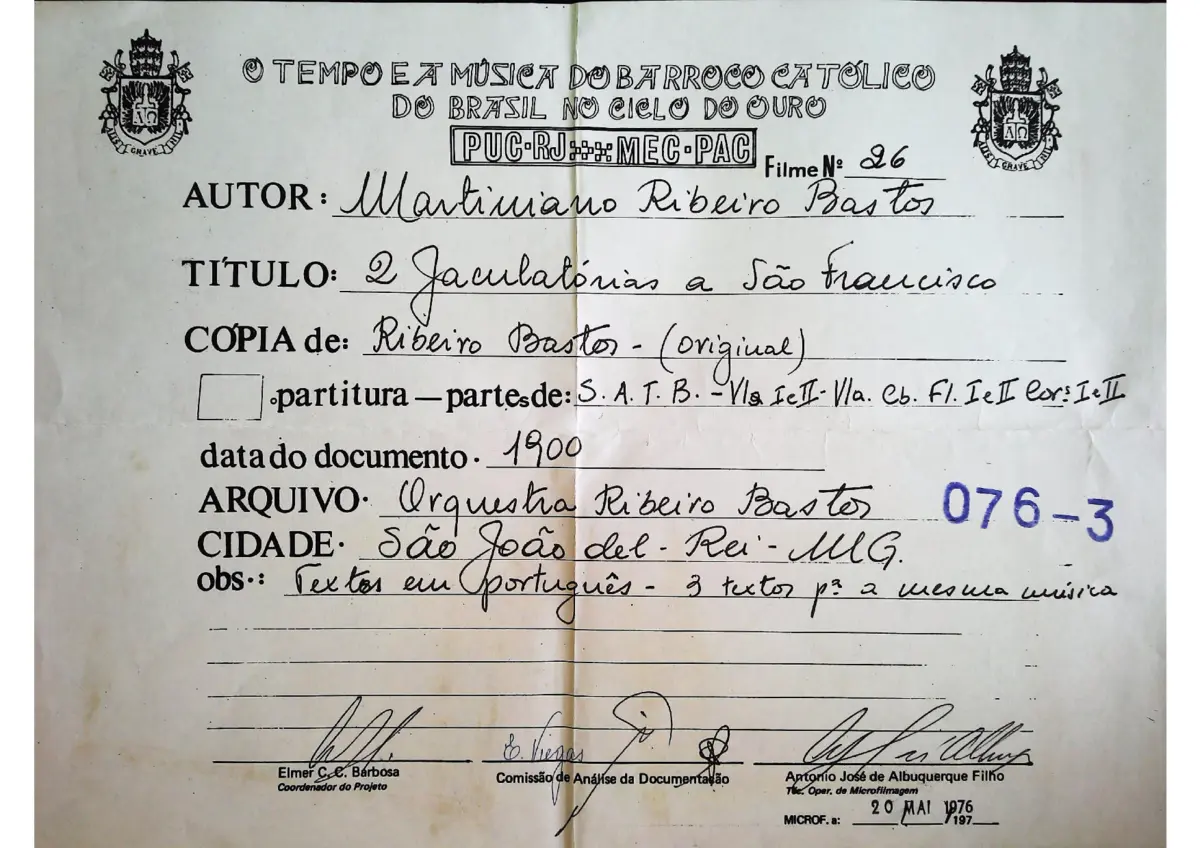 O TEMPO E A MÚSICA DO BARROCO CATÓLICO
DO BRASIL NO CICLO DO OURO
PUC-RJ MEC-PAC
Filme Nº 26
AUTOR: Martiniano Ribeiro Bastos
TÍTULO: 2 Jaculatórias a São Francisco
CÓPIA de: Ribeiro Bastos - (original)
partitura — partes de: S. A. T. B. - Vls I e II - Vla. Cb. Fl. I e II Cor: I e II
data do documento. 1900
ARQUIVO. Orquestra Ribeiro Bastos
076-3
CIDADE. São João del-Rei - MG.
obs.: Textos em português - 3 textos pª a mesma música
E. Viegas
Elmer C. C. Barbosa
Coordenador do Projeto
Comissão de Análise da Documentação
Antonio José de Albuquerque Filho
Téc. Oper. de Microfilmagem
MICROF. a: 20 MAI 1976
197